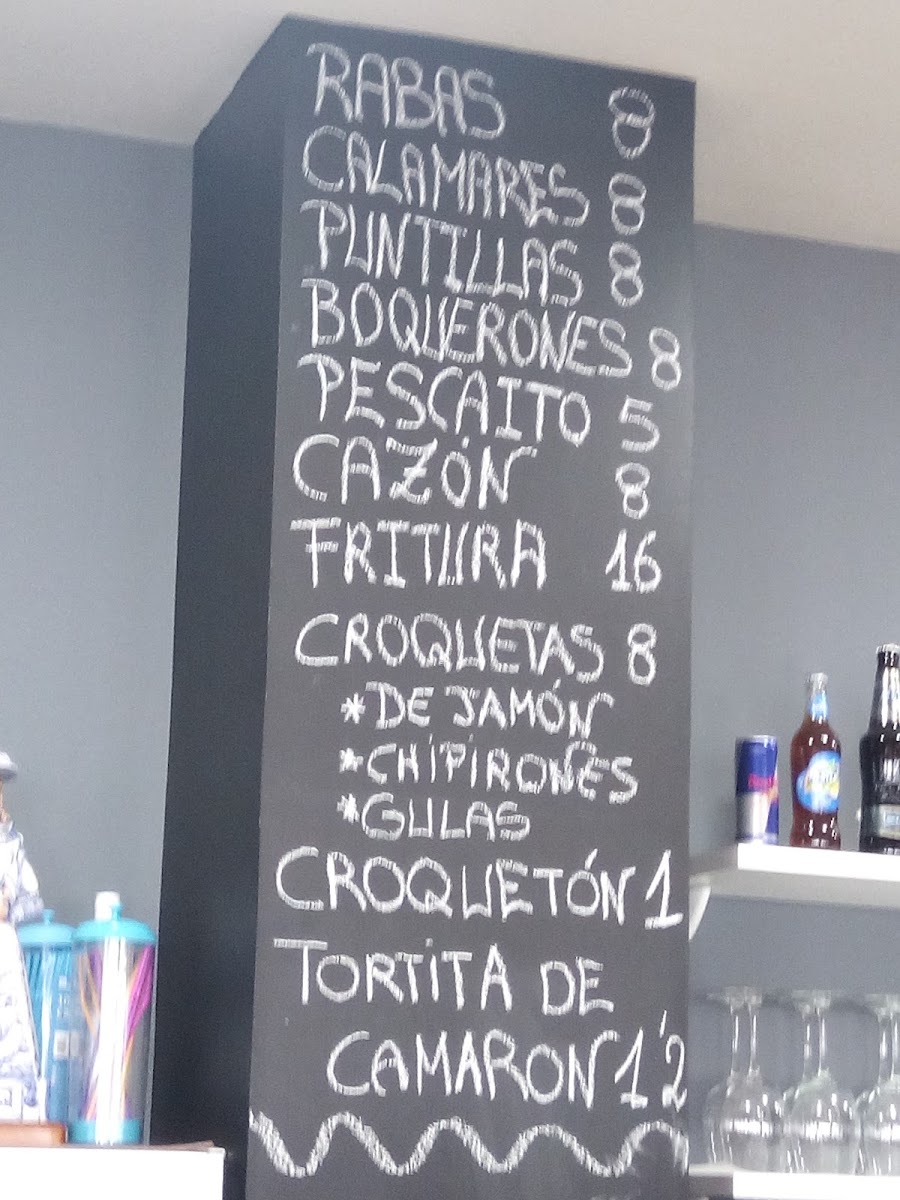 RABAS 8
CALAMARES 8
PUNTILLAS 8
BOQUERONES 8
PESCAITO 5
CAZÓN 8
FRITURA 16
CROQUETAS 8
*DE JAMÓN
*CHIPIRONES
*GULAS
CROQUETÓN 1
TORTITA DE
CAMARON 1'2